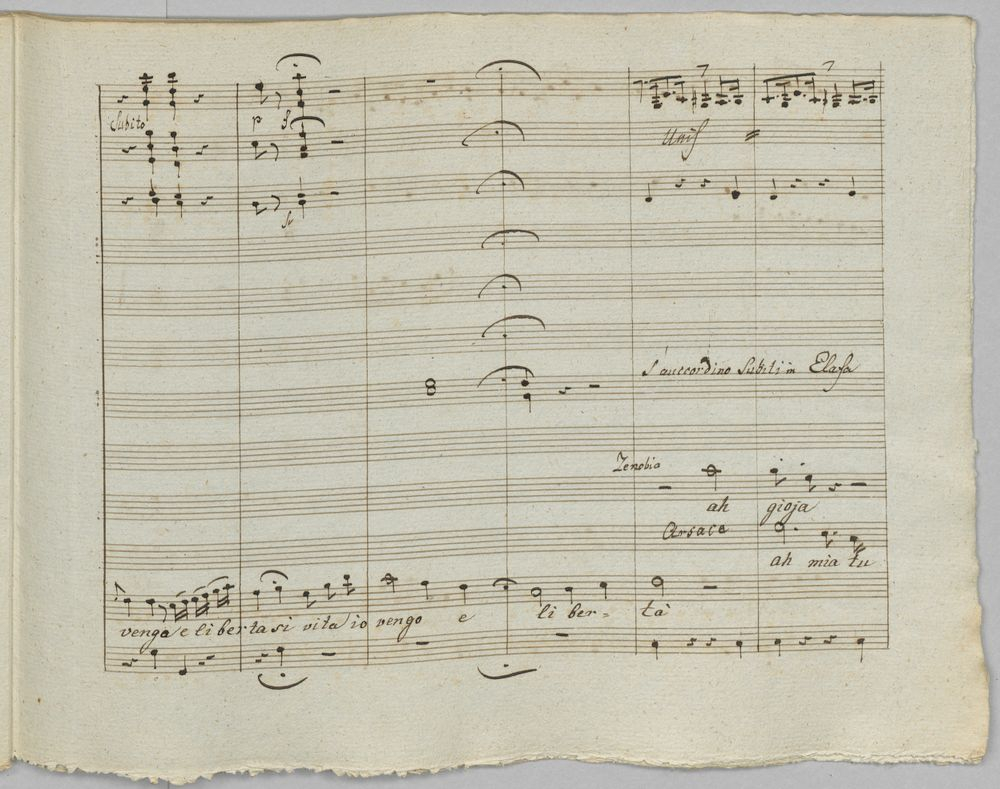 Subito
p f
Unis
f
S'auccordino Subiti in Elafa
Zenobia
ah gioja
Arsace
ah mia tu
venga e liberta si vita io vengo e li ber= tà